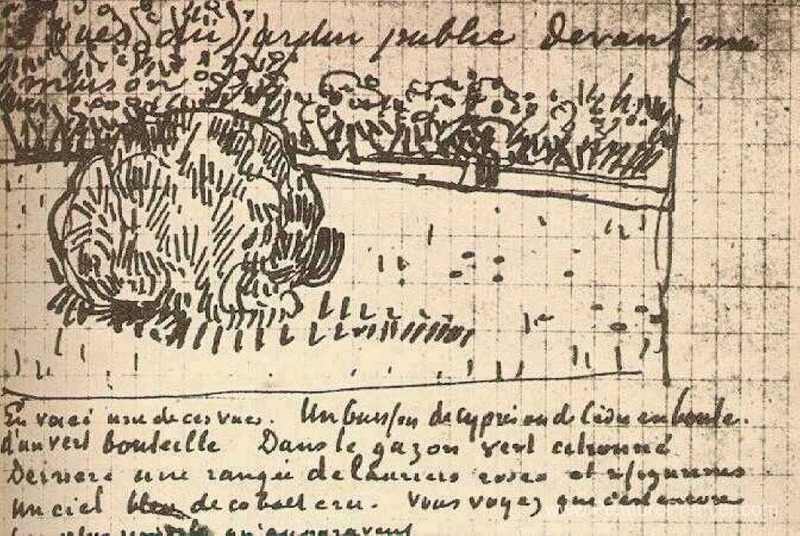 vues du jardin public devant ma
maison
En voici une de ces vues. Un buisson de cyprès rond cèdre en boule.
d'un vert bouteille Dans le gazon vert citronné
Derriere une rangée de lauriers roses et 2 figurines
un ciel bleu de cobalt cru. Vous voyez que c'est encore
plus qu'auparavant